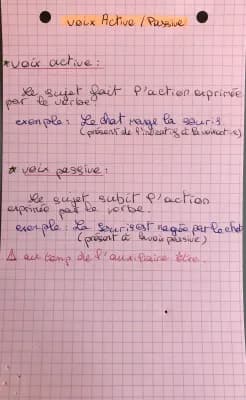 Voix Active / Passive
* voix active :
Le sujet fait l'action exprimée
par le verbe.
exemple : Le chat mange la souris.
(présent de l'indicatif à la voix active)
* voix passive :
Le sujet subit l'action
exprimée par le verbe.
exemple : La souris est mangée par le chat
(présent à la voix passive)
⚠ au temp de l'auxiliaire être.